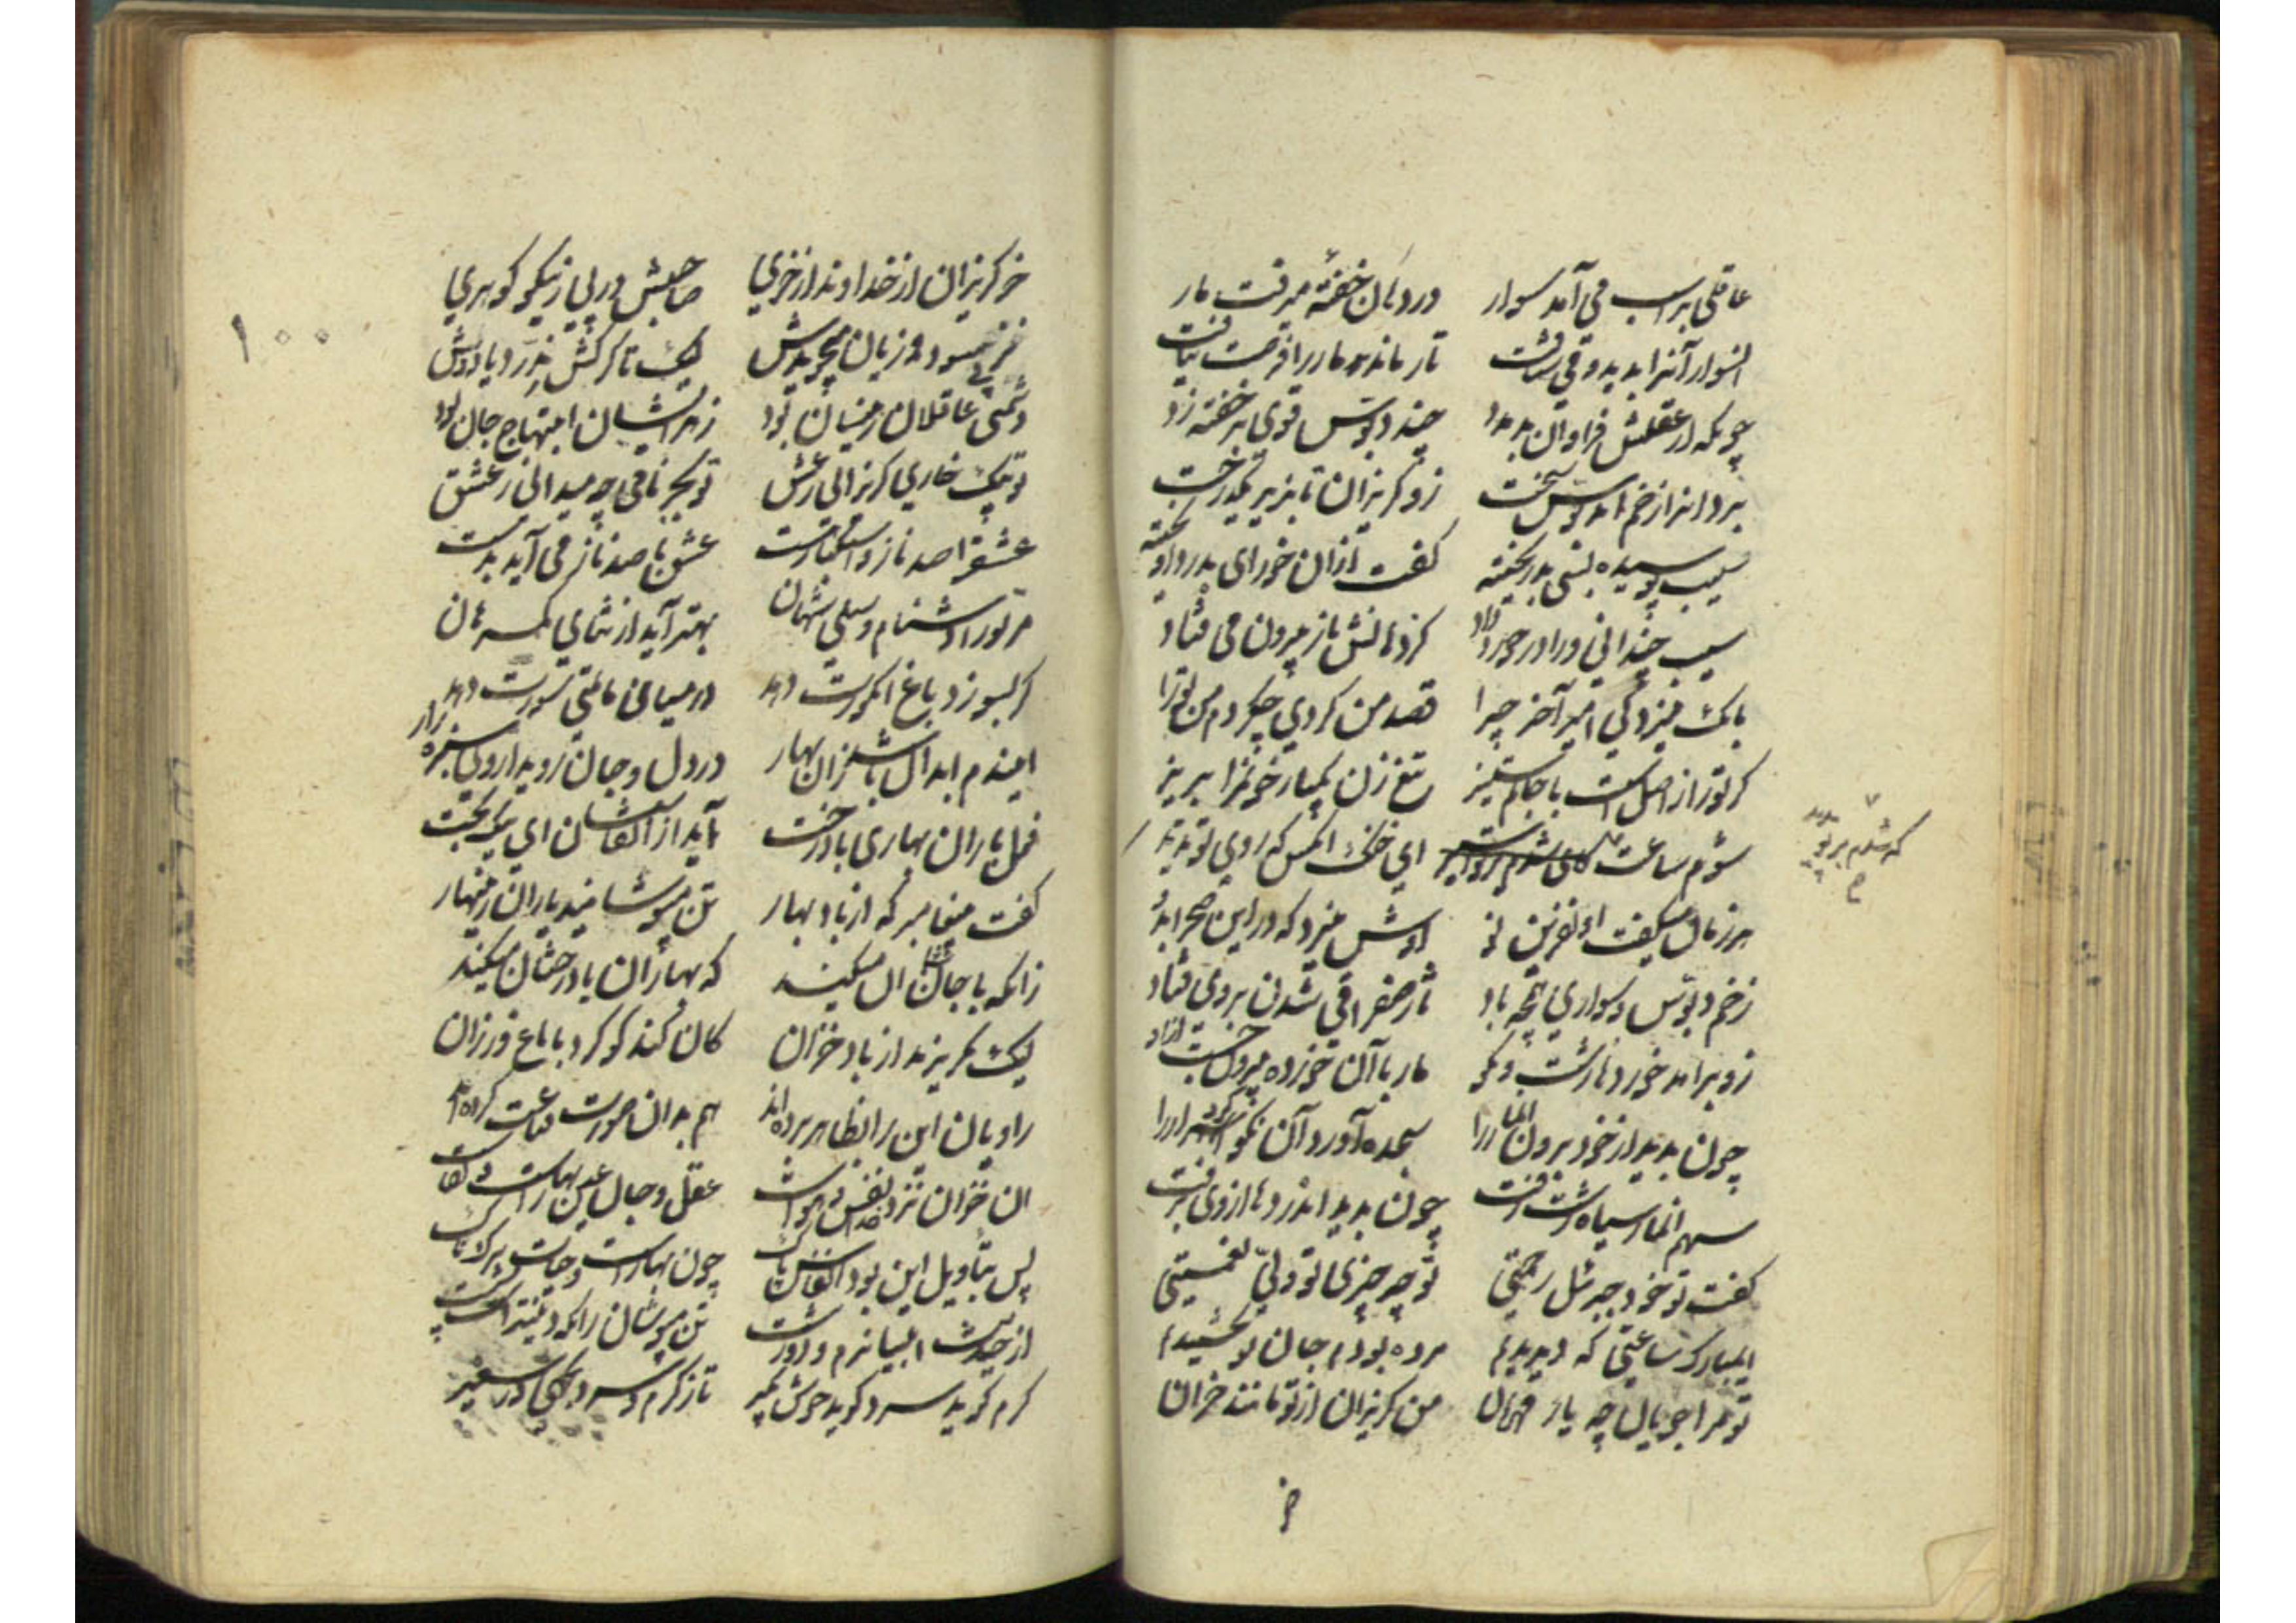 عاقلی بر اسب می آمد سوار در دهان خفته میرفت مار
انسوار آنرا بدید و می شتافت تا رهاند مار را فرصت نیافت
چونکه از عقلش فراوان بد مدد چند دبوس قوی بر خفته زد
برد او را زخم ان دبوس سخت زو گریزان تا بزیر یک درخت
سیب پوسیده بسی بد ریخته گفت ازان خور ای بدرد آویخته
سیب چندانی ورا در خورد داد کز دهانش باز بیرون می فتاد
بانک میزد کی امیر آخر چرا قصد من کردی چکردم من ترا
گر ترا از اصل است با جانم ستیز تیغ زن یکبار خونم را بریز
شوم ساعت که شدم بر تو پدید ای خنک انکس که روی تو ندید
هر زمان میگفت او نفرین نو اوش میزد که در این صحرا بدو
زخم دبوس و سواری همچو باد تا ز صفرا قی شدن بر وی فتاد
زو برامد خورده زشت و نکو مار با آن خورده بیرون جست ازو
چون بدید از خود برون انمار را سجده آورد آن نکو کردار را
سهم انمار سیاه زشت زفت چون بدید اندردها از وی برفت
گفت تو خود جبرئیل رحمتی تو چه چیزی تو ولی نعمتی
ایمبارک ساعتی که دیدیم مرده بودم جان نو بخشیدیم
تو مرا جویان چه یار مهربان من گریزان از تو مانند خران
خر
۱۰۰
خر گریزان از خداوند از خری صاحبش در پی ز نیکو گوهری
نز پی سود و زیان میجویدش لیک تا گرگش ندرد یا ددش
دشمنی عاقلان زینسان بود زهر ایشان ابتهاج جان بود
تو بیک خاری گریزانی ز عشق تو بجز نامی چه میدانی ز عشق
عشق را صد ناز و استکبار هست عشق با صد ناز می آید بدست
مر ترا دشنام و سیلی شهان بهتر آید از ثنای گمرهان
گر بسوزد باغ انگورت دهد در میان ماتمی سورت دهد
ایندم ابدال باشد زان بهار در دل و جان روید از وی سبزه زار
فعل باران بهاری با درخت آید از انفاسشان ای نیکبخت
گفت پیغامبر که از باد بهار تن مپوشانید یاران زینهار
زانکه با جان شما ان میکند که بهاران با درختان میکند
لیک بگریزید از باد خزان کان کند کو کرد با باغ و رزان
راویان این را بظاهر برده اند هم بدان صورت قناعت کرده اند
ان خزان نزد خدا نفس و هواست عقل و جان عین بهارست و بقاست
پس بتاویل این بود انفاس پاک چون بهارست و حیات برگ و تاک
از حدیث اولیا نرم و درشت تن مپوشان زانکه دینت راست پشت
گرم گوید سرد گوید خوش بگیر تا ز گرم و سرد بجهی وز سعیر
که شدم بر تو پدید